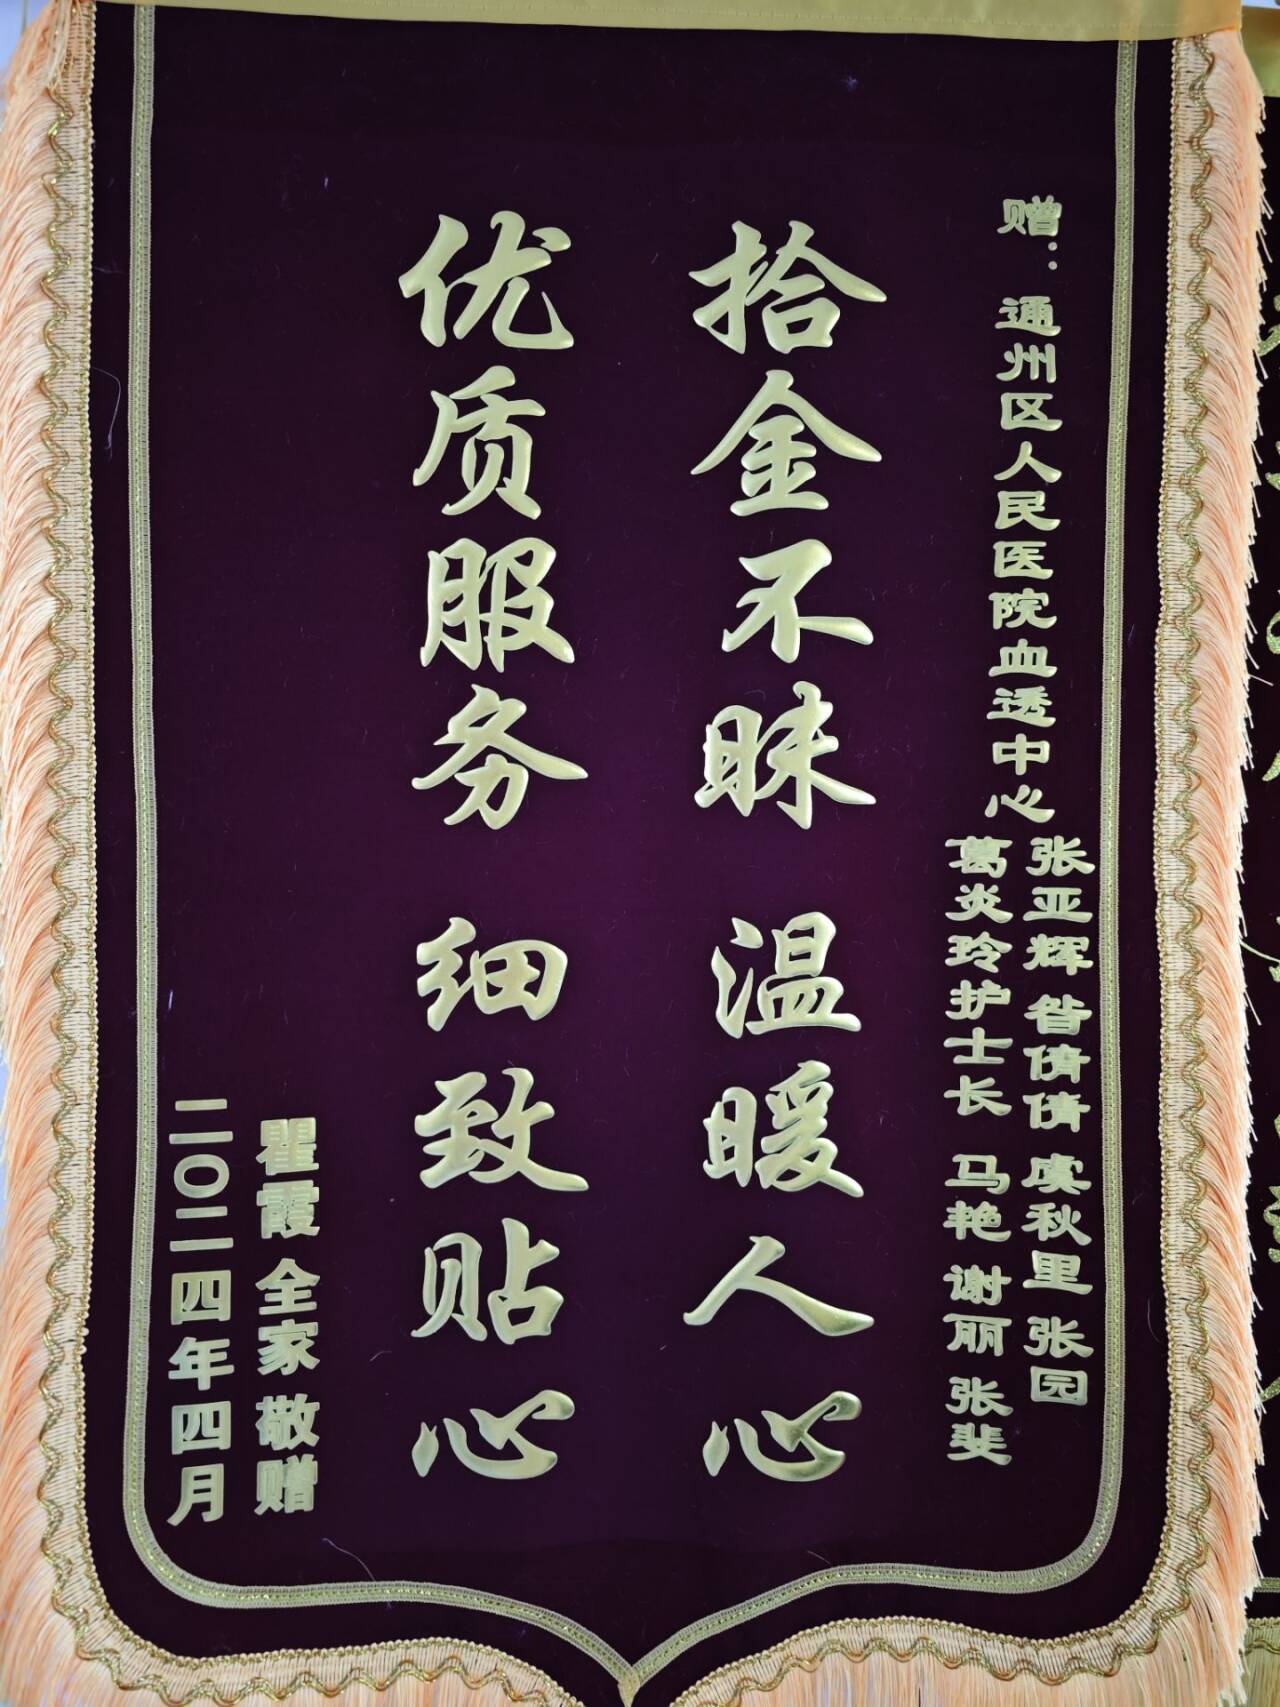 赠：通州区人民医院血透中心
张亚辉 昝倩倩 虞秋里 张园
葛炎玲护士长 马艳 谢丽 张斐
拾金不昧 温暖人心
优质服务 细致贴心
瞿霞 全家 敬赠
二〇二四年四月